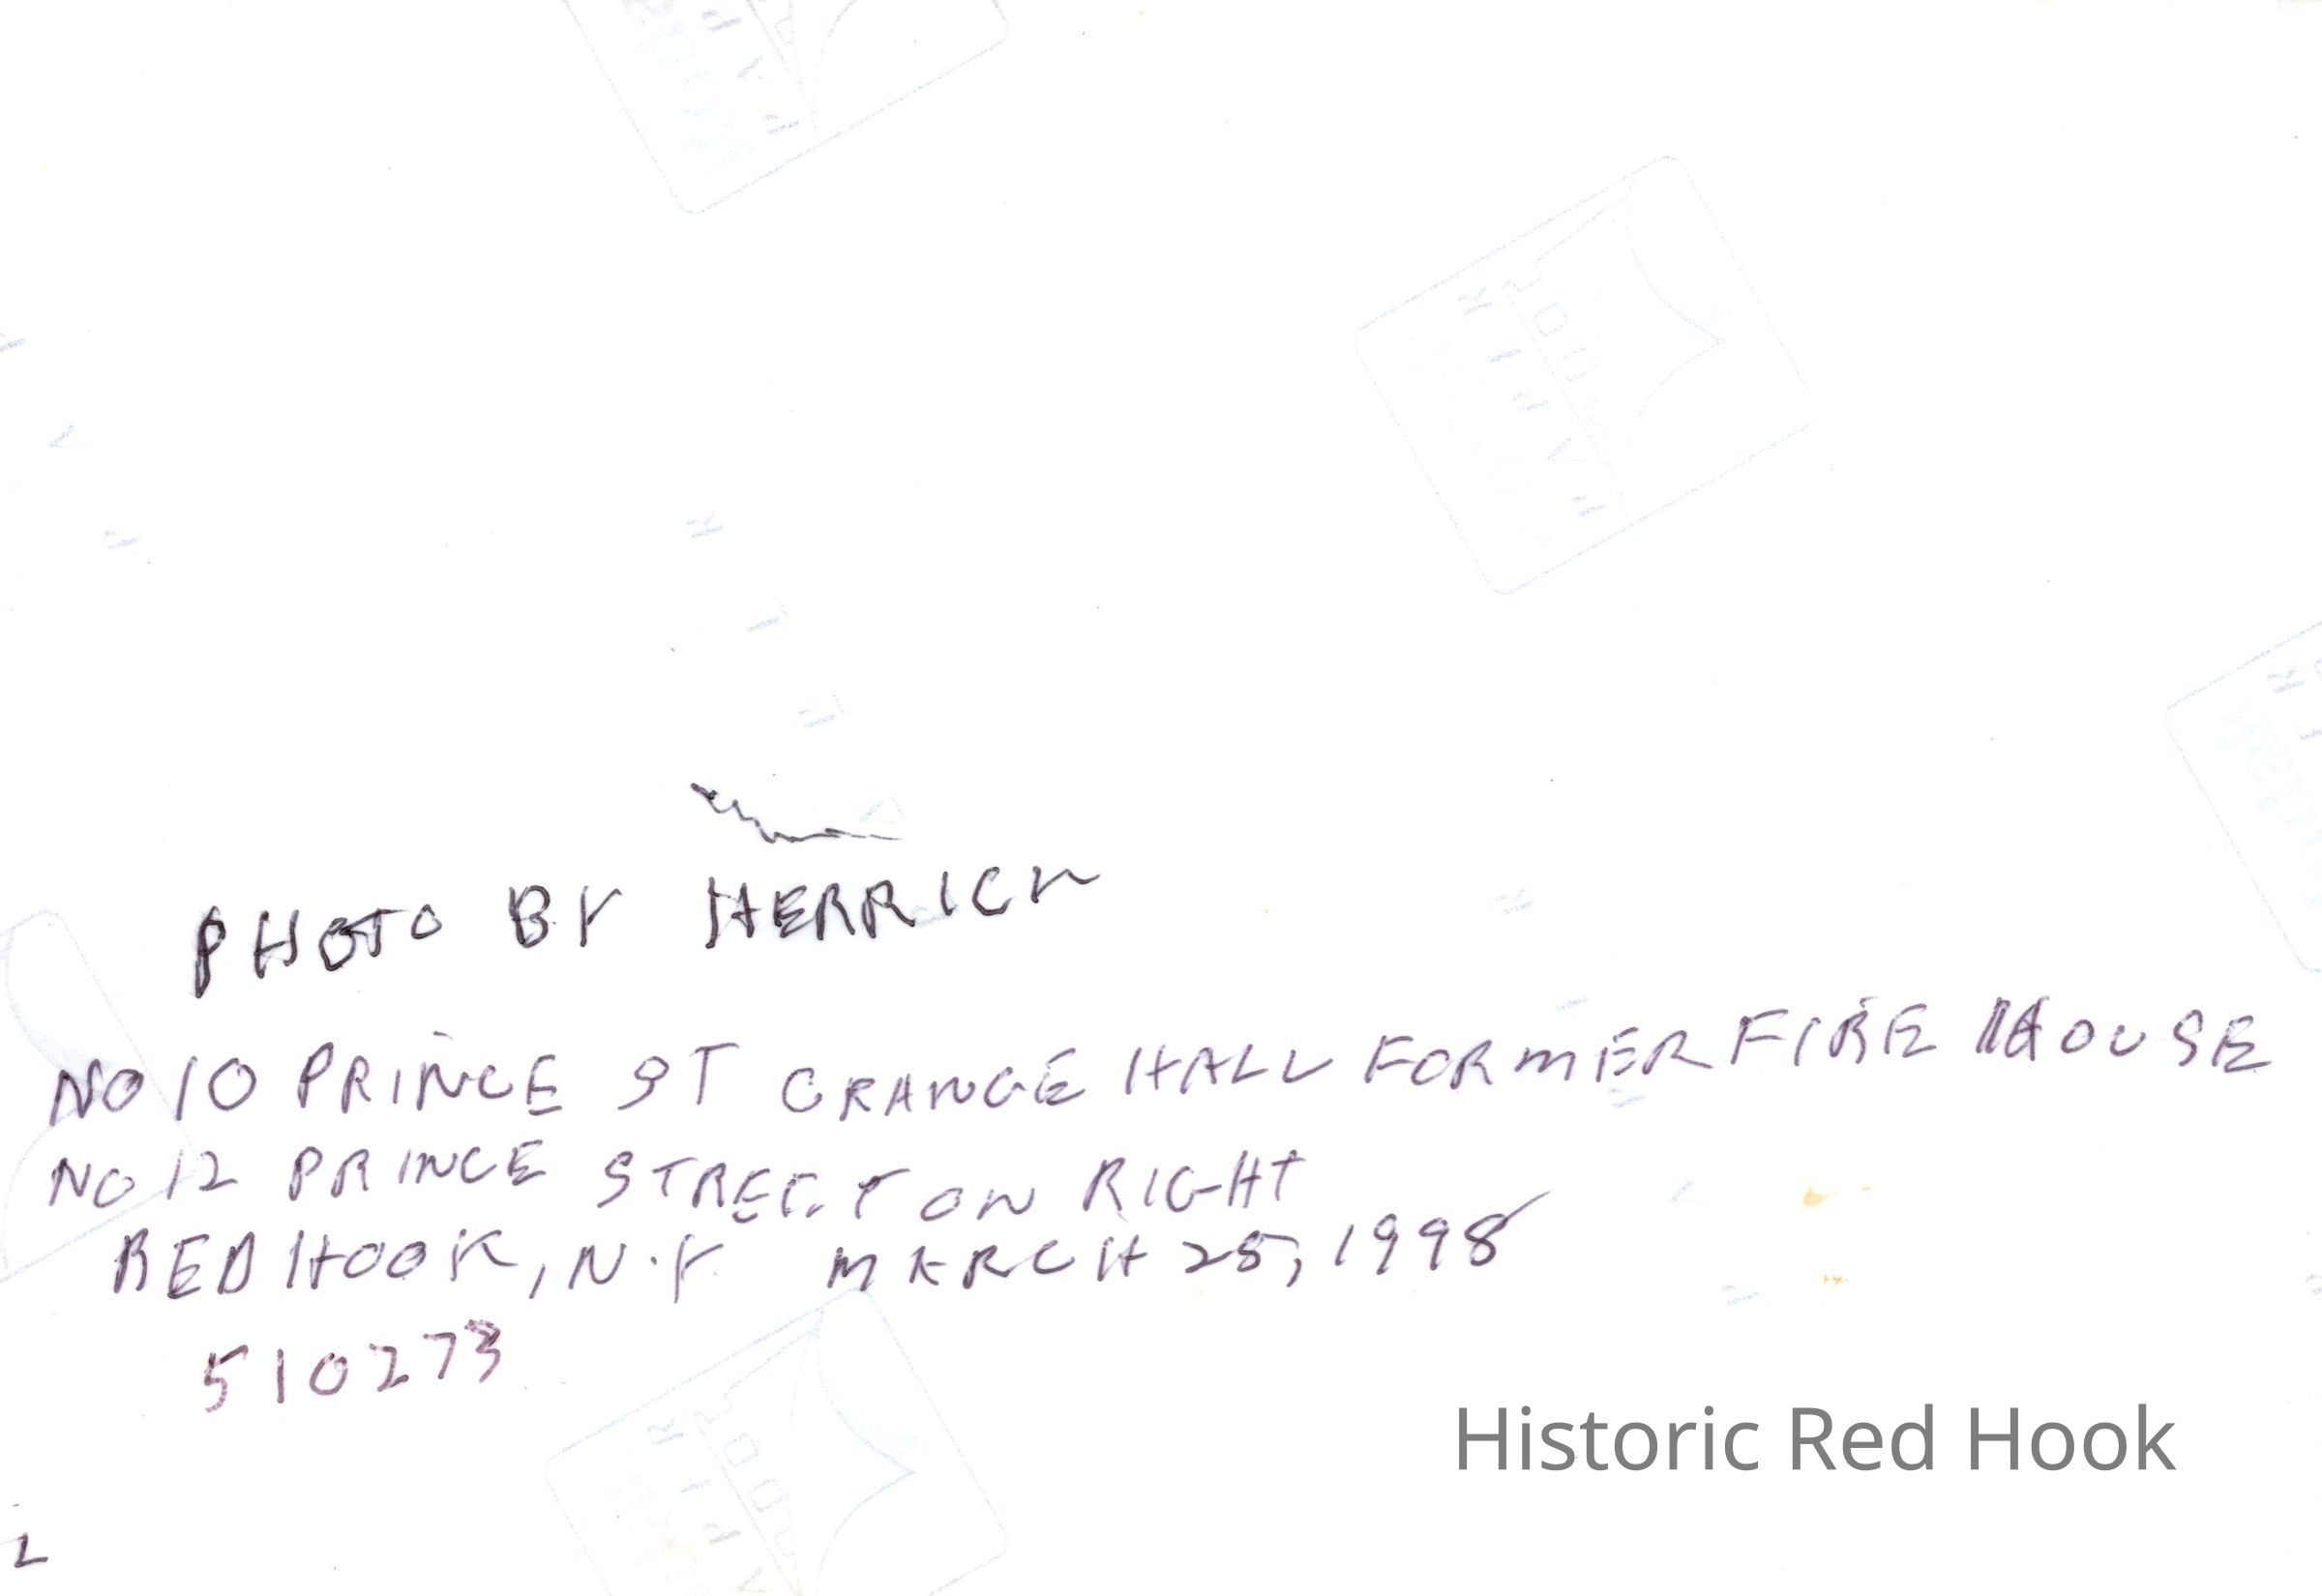 PHOTO BY HERRICK
NO 10 PRINCE ST GRANGE HALL FORMER FIRE HOUSE
NO 12 PRINCE STREET ON RIGHT
RED HOOK, N.Y MARCH 25, 1998
510273
Historic Red Hook
2